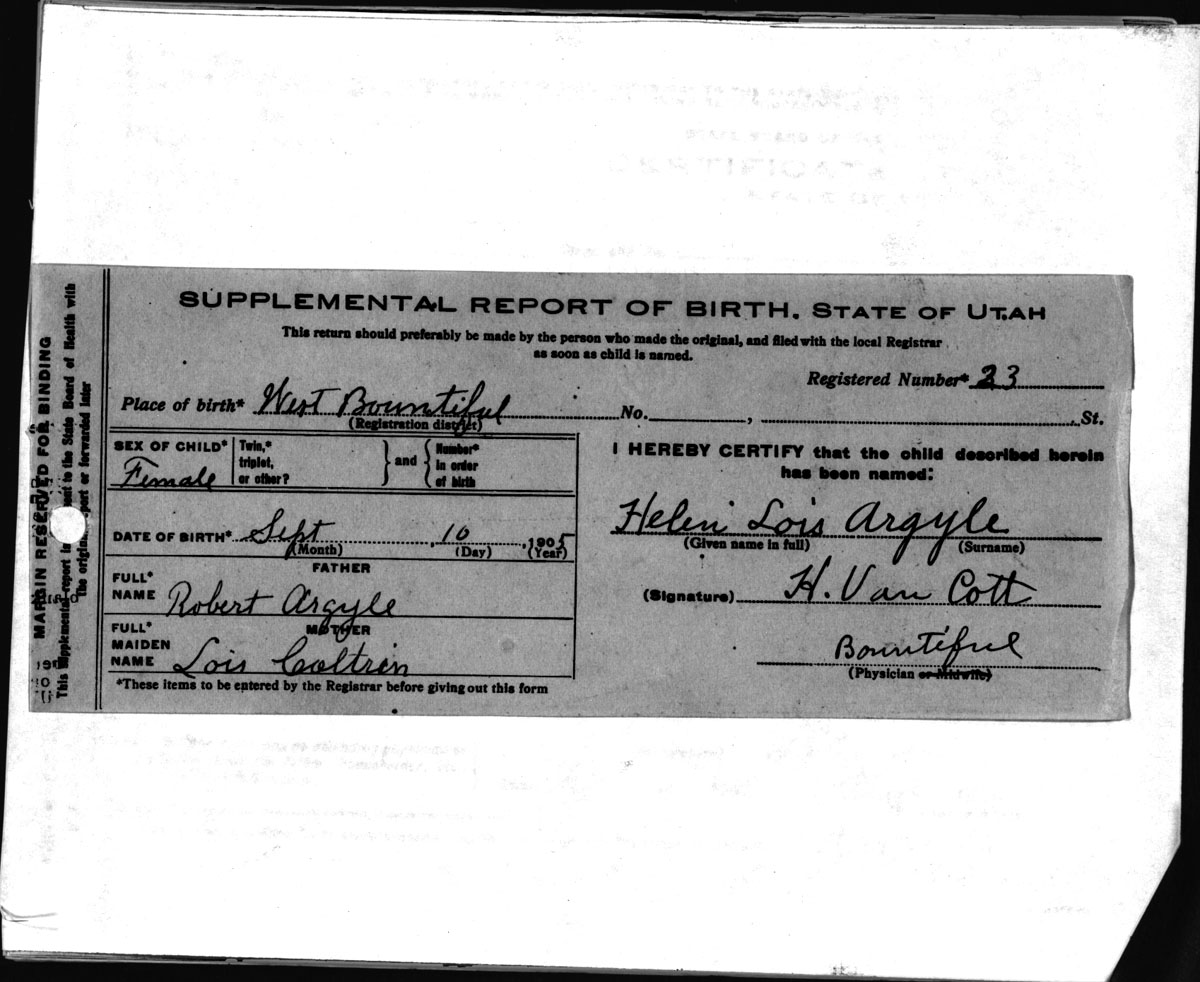 SUPPLEMENTAL REPORT OF BIRTH. STATE OF UTAH
This return should preferably be made by the person who made the original, and filed with the local Registrar
as soon as child is named.
Registered Number* 23
Place of birth* West Bountiful No. , St.
(Registration district)
SEX OF CHILD* Female
Twin,* triplet, or other? } and { Number* in order of birth
DATE OF BIRTH* Sept 10 1905
(Month) (Day) (Year)
FATHER
FULL* NAME Robert Argyle
MOTHER
FULL* MAIDEN NAME Lois Coltrin
*These items to be entered by the Registrar before giving out this form
I HEREBY CERTIFY that the child described herein
has been named:
Helen Lois Argyle
(Given name in full) (Surname)
(Signature) H. Van Cott
Bountiful
(Physician or Midwife)
MARGIN RESERVED FOR BINDING
This Supplemental report to the State Board of Health with
The original report or forwarded later